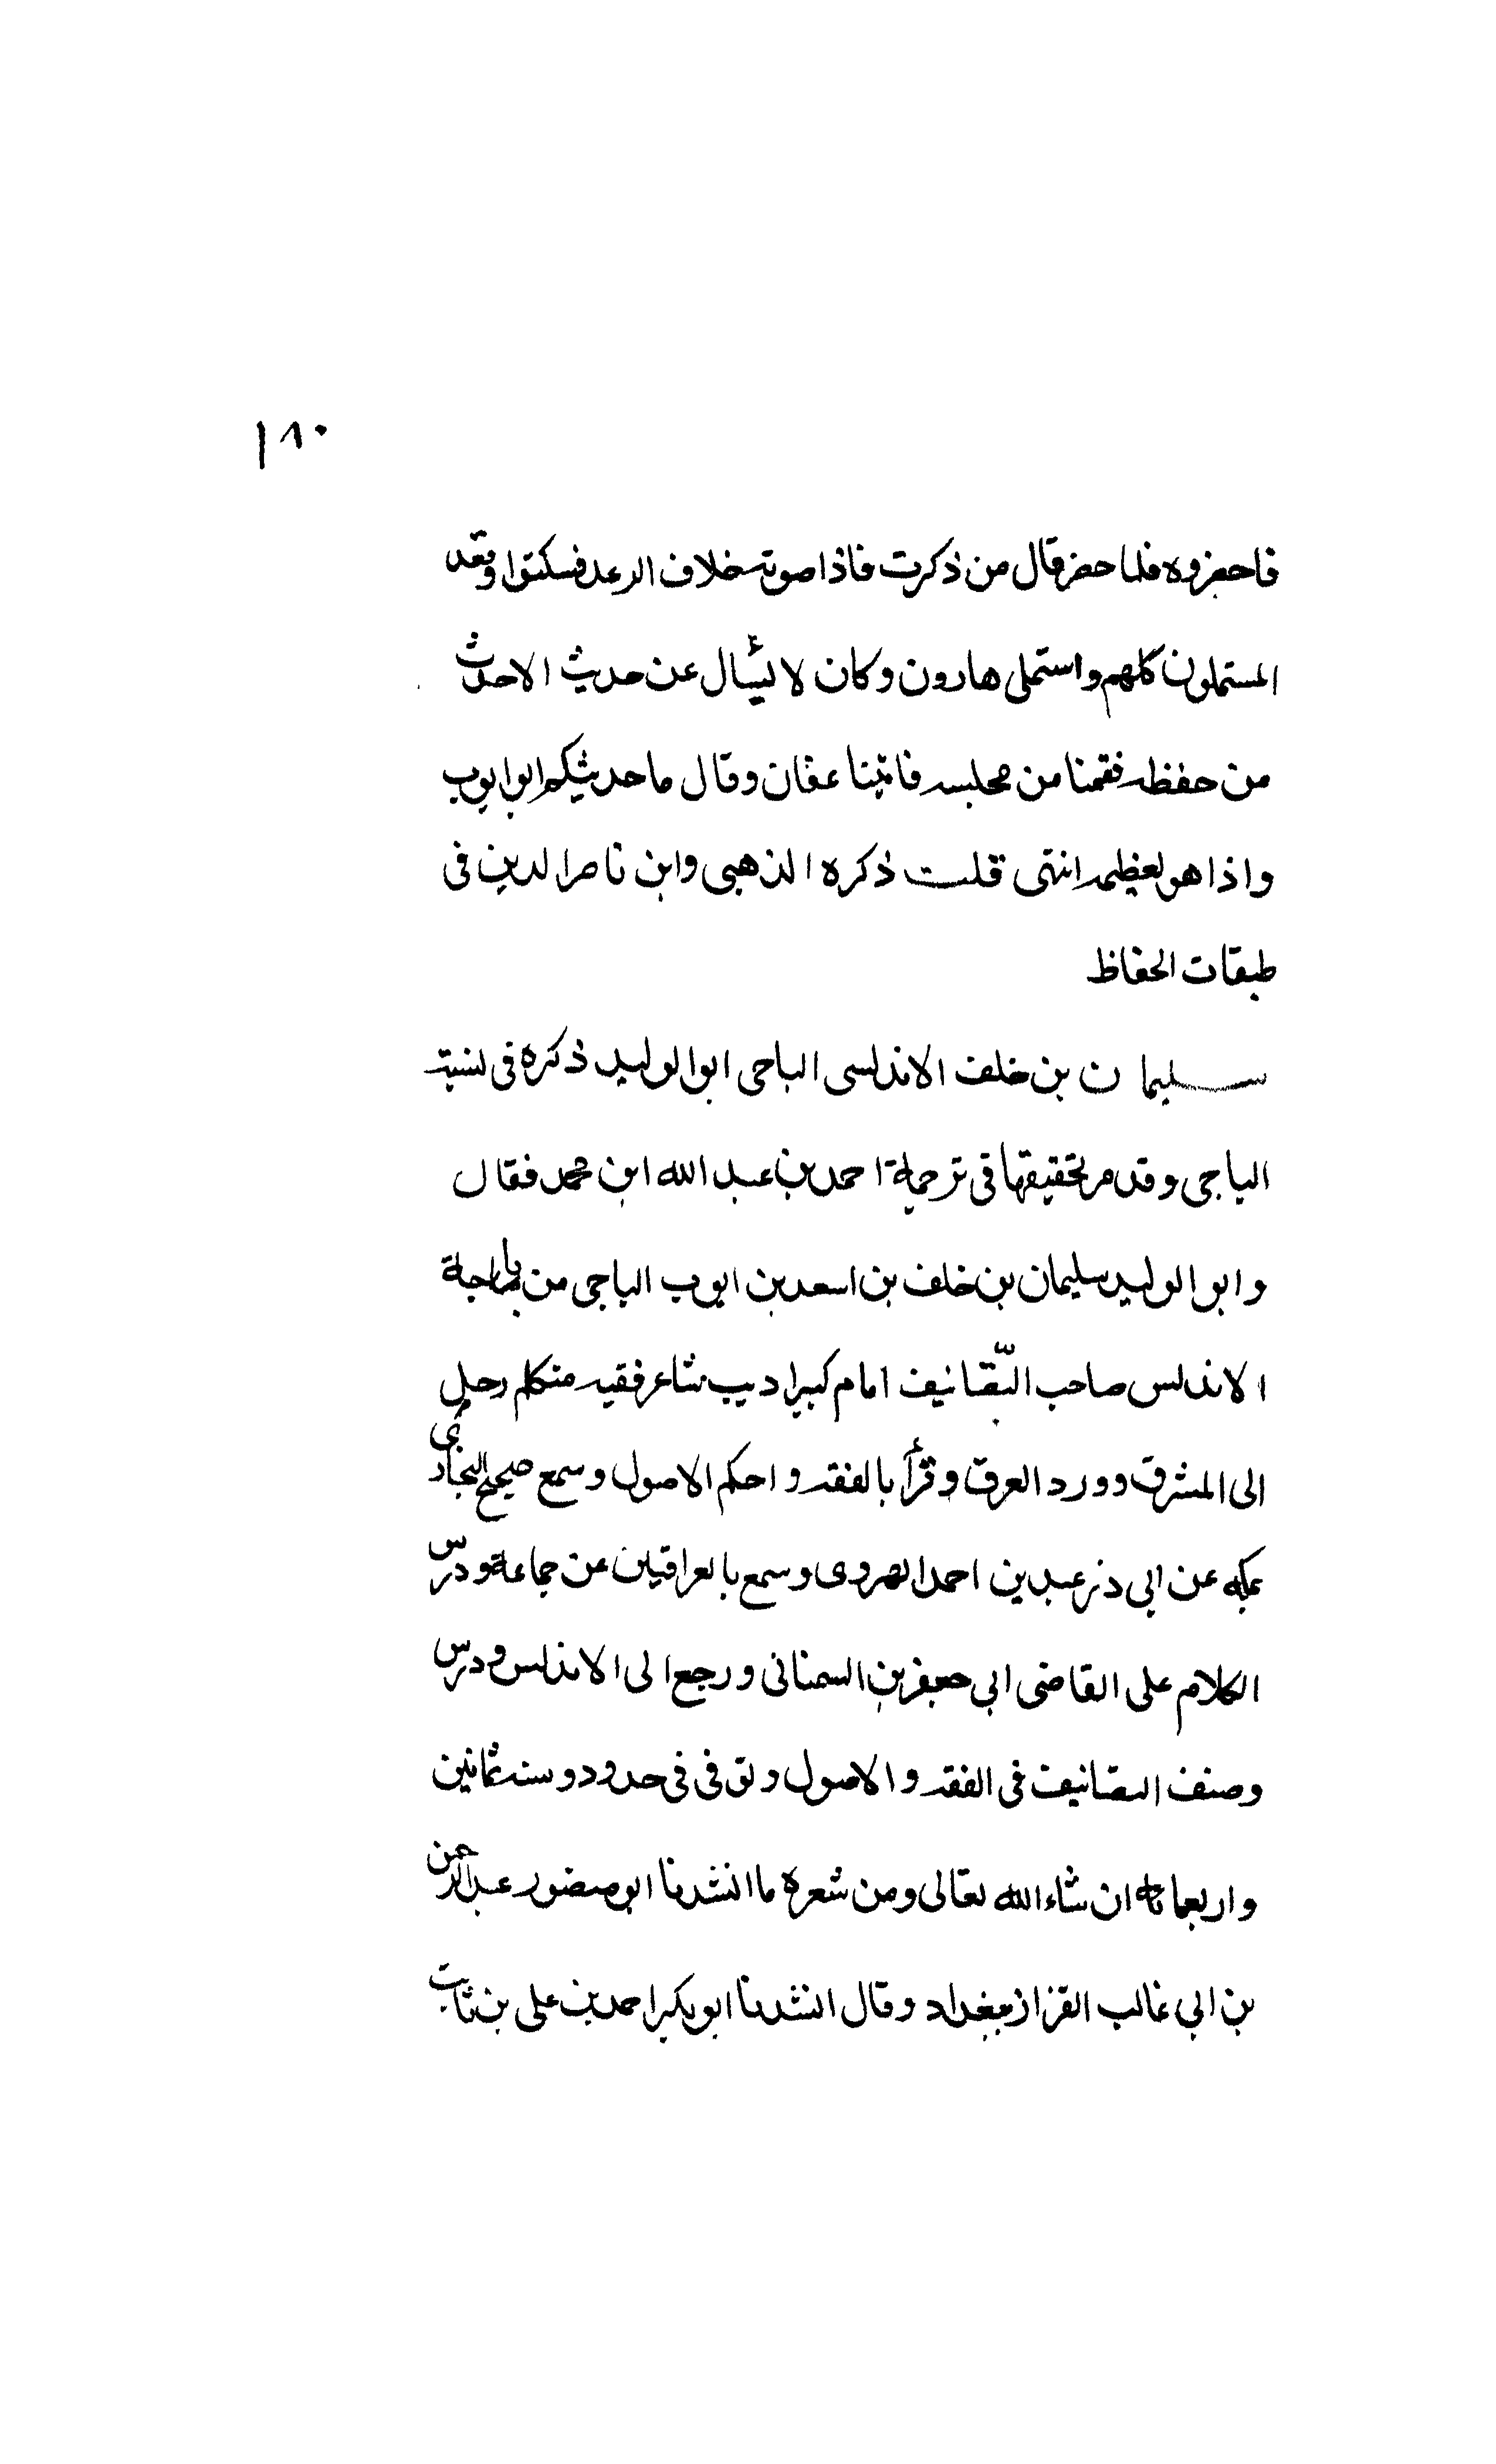 ١٨٠
فاحضروه فلما حضر قال من ذكرت فاذا صوته خلاف الرعد فسكتوا وقعد
المستملون كلهم واستملى هارون وكان لا يسٔال عن حديث الا حدث
من حفظه فقمنا من مجلسه فاتينا عفان وقال ما حديثكم ابو ايوب
واذا هو لعظيمه انتهى قلت ذكره الذهبى وابن ناصر الدين فى
طبقات الحفاظ
سليمان بن خلف الاندلسى الباجى ابو الوليد ذكره فى لنسبته
الباجى وقد مر تحقيقها فى ترجمة احمد بن عبد الله ابن محمد فقال
وابو الوليد سليمان بن خلف بن اسعد بن ايوب الباجى من باجة
الاندلس صاحب التّصانيف امام كبير اديب شاعر فقيه متكلم رحل
الى المشرق وورد العرق وقرأ بالفقه واحكم الاصول وسمع صحيح البخارى
بمكه عن ابى ذر عبد بن احمد الهروى وسمع بالعراقين عن جماعة ودرس
الكلام على القاضى ابى جعفر بن السمنانى ورجع الى الاندلس ودرس
وصنف التصانيف فى الفقه والاصول وتوفى فى حدود وسنه ثمانين
واربعمائه ان شاء الله تعالى ومن شعره ما انشدنا ابو منصور عبد الرحمن
بن ابى غالب القزاز ببغداد وقال انشدنا ابو بكر احمد بن على بن ثابت